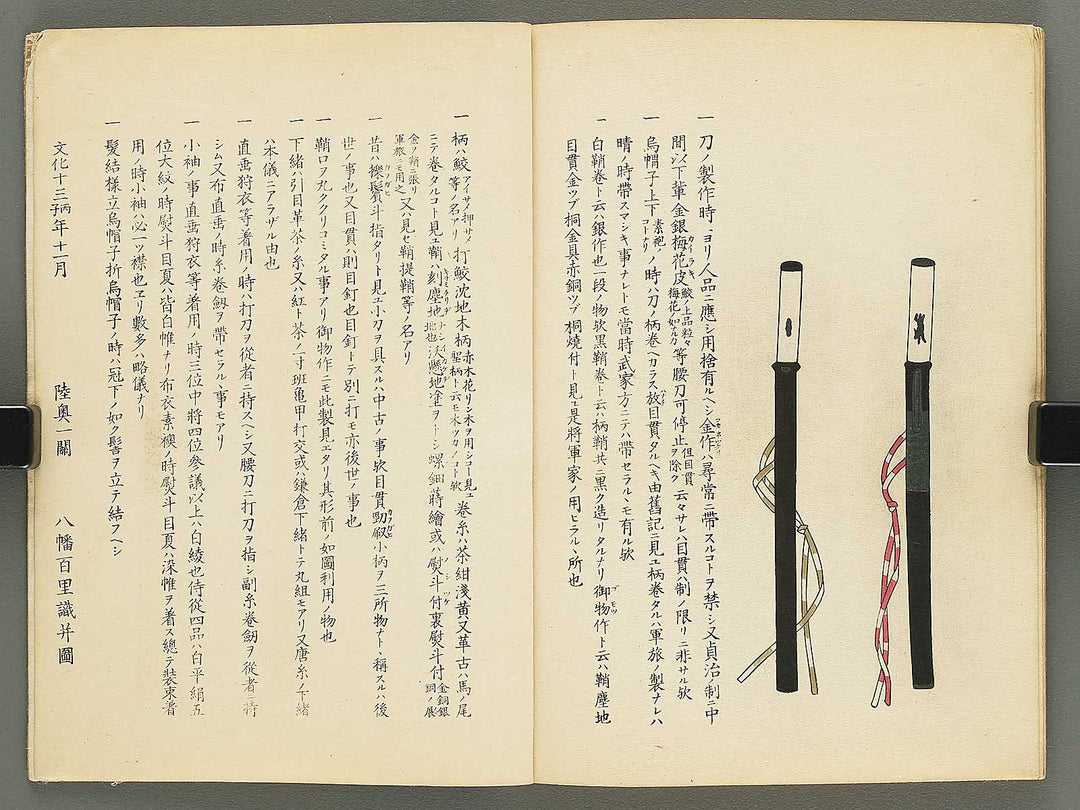 一 刀ノ製作時ニヨリ人品ニ應シ用捨有ルヘシ金作ハ尋常ニ帶スルコトヲ禁シ又貞治ノ制ニ中
間以下輩金銀梅花皮カイラキ鮫ノ上品粒々梅花ノ如クナルカ等腰刀可停止但目貫ヲ除ク云々サレハ目貫ハ制ノ限リニ非サル歟
烏帽子上下素袍ノコトナリノ時ハ刀ノ柄巻ヘカラス放目貫タルヘキ由舊記ニ見ユ柄巻タルハ軍旅ノ製ナレハ
晴ノ時帶スマシキ事ナレトモ當時武家方ニテハ帶セラルヽモ有ル歟
一 白鞘巻ト云ハ銀作也一段ノ物歟黒鞘巻ト云ハ柄鞘共ニ黒ク造リタルナリ御物ゴモツ作ト云ハ鞘塵地
目貫金ツブ桐金具赤銅ツブ桐燒付ト見ユ是將軍家ノ用ヒラルヽ所也
一 柄ハ鮫アイサメ押サメ等ノ名アリ打鮫沈地木柄赤木花リン木ヲ用シコト見ユ聖柄ト云モ木ツカノコト歟巻糸ハ茶紺淺黄又革古ハ馬ノ尾
ニテ巻タルコト見ユ鞘ハ刻塵地沃懸地塗ヲトシ螺鈿蒔繪或ハ熨斗付裏熨斗付金銅銀銅ノ展
金ヲ鞘ニ張リ軍旅ニモ用之又ハ見セ鞘提鞘等ノ名アリ
一 昔ハ熨斗指タリト見ユ小刀ヲ具スルハ中古ノ事歟目貫小柄ヲ三所物ナトヽ稱スルハ後
世ノ事也又目貫ハ則目釘也目釘トテ別ニ打モ亦後世ノ事也
一 鞘口ヲ丸クヽリコミタル事アリ御物作ニモ此製見エタリ其形前ノ如圖利用ノ物也
一 下緒ハ引目革茶ノ糸又ハ紅ト茶ノ一寸班亀甲打交或ハ鎌倉下緒トテ丸組モアリ又唐糸ノ下緒
ハ本儀ニアラザル由也
一 直垂狩衣等着用ノ時ハ打刀ヲ從者ニ持スヘシ又腰刀ニ打刀ヲ指シ副糸巻劔ヲ從者ニ持
シム又布直垂ノ時糸巻劔ヲ帶セラルヽ事モアリ
一 小袖ノ事直垂狩衣等着用ノ時三位中將四位參議以上ハ白綾也侍從四品ハ白平絹五
位大紋ノ時熨斗目夏ハ皆白帷ナリ布衣素襖ノ時熨斗目夏ハ深帷ヲ着ス總テ裝束着
用ノ時小袖ハ必一ツ襟也ヱリ數多ハ略儀ナリ
一 髪結樣立烏帽子折烏帽子ノ時ハ冠下ノ如ク髻ヲ立テ結フヘシ
文化十三丙子年十一月 陸奥一關 八幡百里識并圖